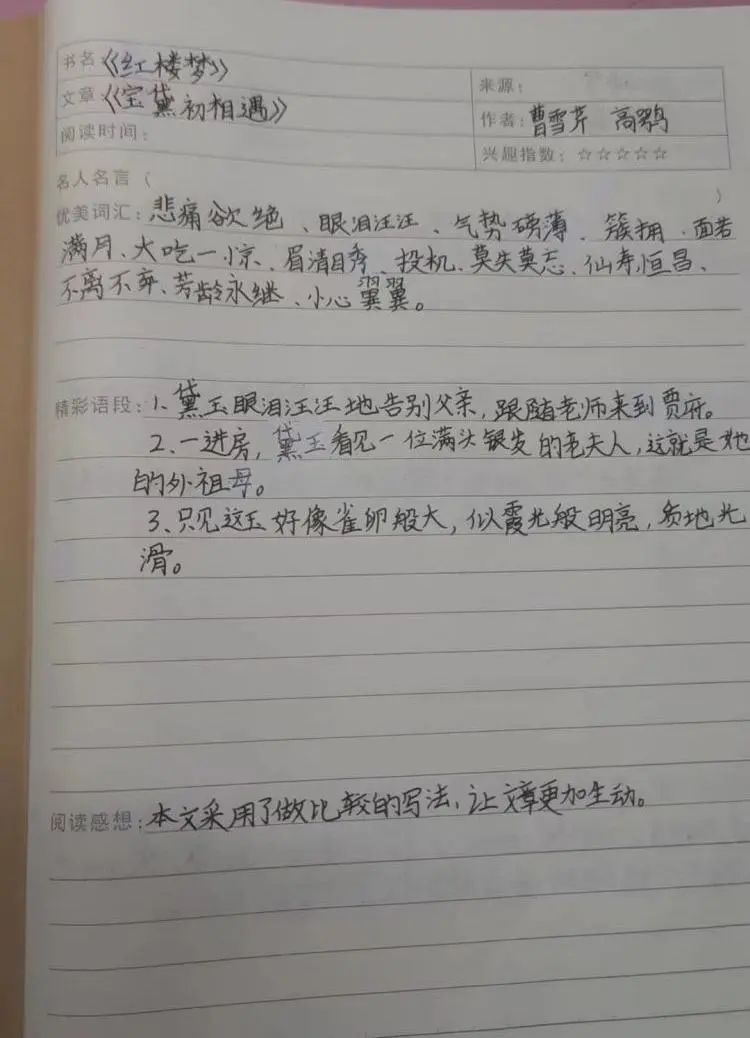 书名《红楼梦》
来源：
文章《宝黛初相遇》
作者：曹雪芹 高鹗
阅读时间：
兴趣指数：☆☆☆☆☆
名人名言（ ）
优美词汇：悲痛欲绝、眼泪汪汪、气势磅薄、簇拥、面若
满月、大吃一惊、眉清目秀、投机、莫失莫忘、仙寿恒昌、
不离不弃、芳龄永继、小心翼翼。
精彩语段：1、黛玉眼泪汪汪地告别父亲，跟随老师来到贾府。
2、一进房，黛玉看见一位满头银发的老夫人，这就是她
的外祖母。
3、只见这玉好像雀卵般大，似霞光般明亮，质地光
滑。
阅读感想：本文采用了做比较的写法，让文章更加生动。